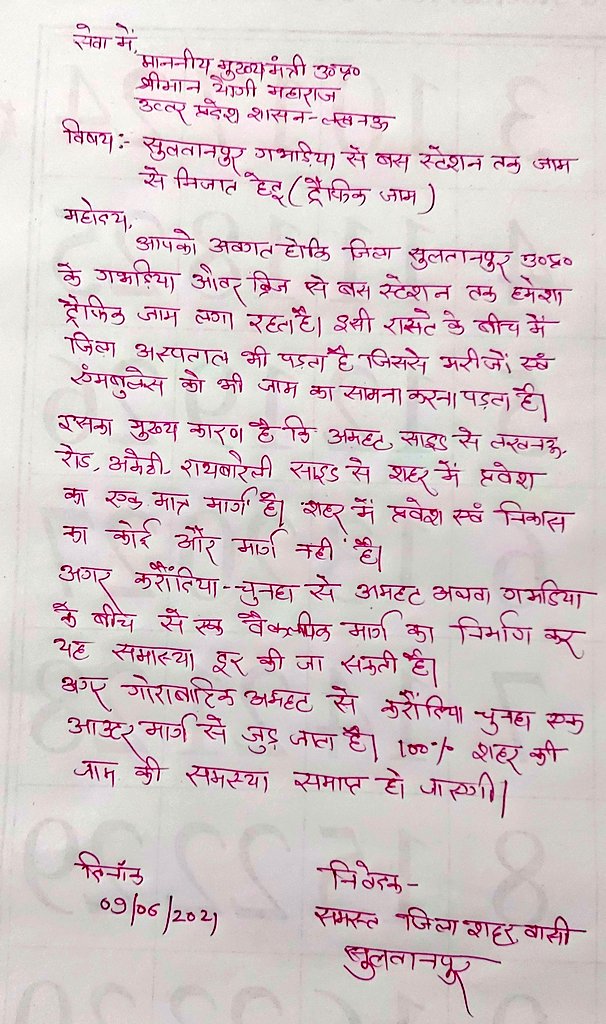 सेवा में,
माननीय मुख्यमंत्री उ०प्र०
श्रीमान योगी महाराज
उत्तर प्रदेश शासन-लखनऊ
विषय:- सुलतानपुर गभाडिया से बस स्टेशन तक जाम
से निजात हेतु (ट्रैफिक जाम)
महोदय,
आपको अवगत होकि जिला सुलतानपुर उ०प्र०
के गभडिया ओवर ब्रिज से बस स्टेशन तक हमेशा
ट्रैफिक जाम लगा रहता है। इसी रास्ते के बीच में
जिला अस्पताल भी पड़ता है जिससे मरीजों एवं
एंमबुलेंस को भी जाम का सामना करना पड़ता है।
इसका मुख्य कारण है कि अमहट साइड से लखनऊ
रोड, अमेठी, रायबारेली साइड से शहर में प्रवेश
का एक मात्र मार्ग है। शहर में प्रवेश एवं निकास
का कोई और मार्ग नही है।
अगर करौंदिया-चुनहा से अमहट अथवा गभडिया
के बीच से एक वैकल्पीक मार्ग का निर्माण कर
यह समास्या दूर की जा सकती है।
अगर गोराबारिक अमहट से करौंदिया चुनहा एक
आउटर मार्ग से जुड़ जाता है। 100% शहर की
जाम की समस्या समाप्त हो जाएगी।
दिनाँक
09/06/2021
निवेदक-
समस्त जिला शहर वासी
सुलतानपुर
8 15 22 29